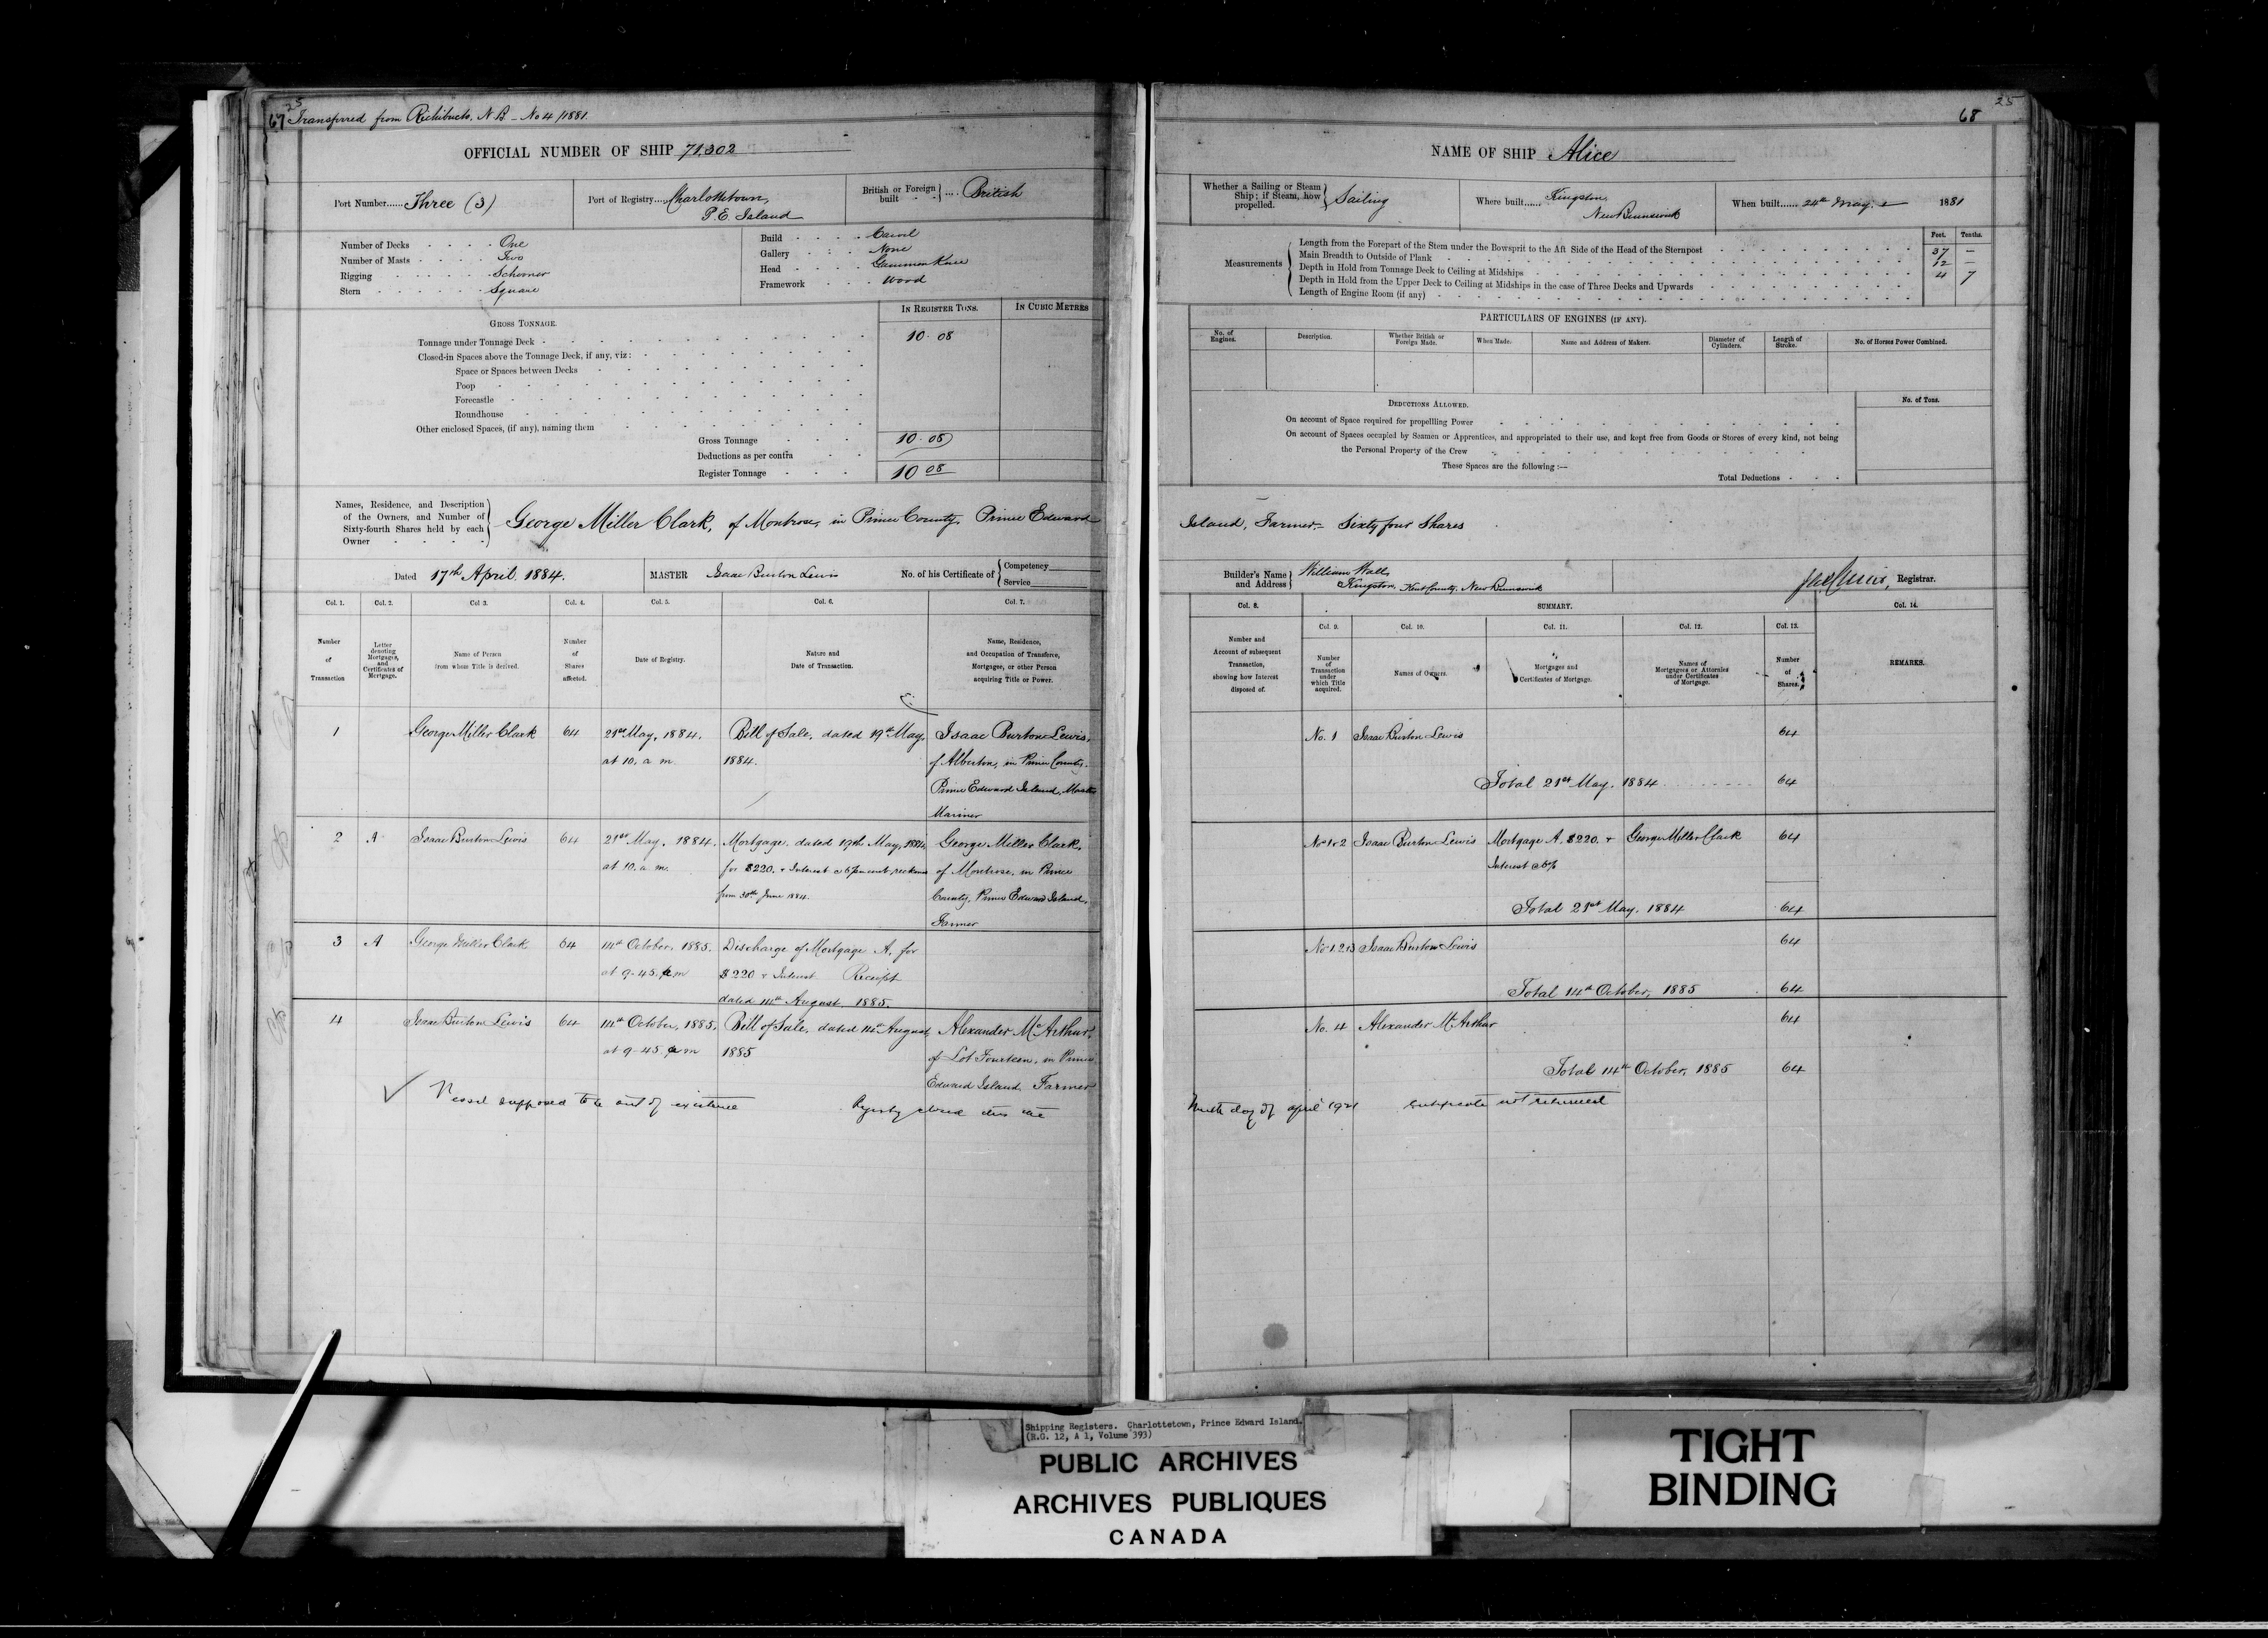 25
67 Transferred from Richibucto, N.B - No 4/1881.
OFFICIAL NUMBER OF SHIP 71,302
Port Number...... Three (3)
Port of Registry.... Charlottetown,
P. E. Island
British or Foreign built .... British
Number of Decks - - - - One
Number of Masts - - - - Two
Rigging - - - - Schooner
Stern - - - - Square
Build - - - - Carvel
Gallery - - - - None
Head - - - - Gammon Knee
Framework - - - Wood
IN REGISTER TONS.
IN CUBIC METRES
GROSS TONNAGE.
Tonnage under Tonnage Deck - 10.08
Closed-in Spaces above the Tonnage Deck, if any, viz:
Space or Spaces between Decks
Poop
Forecastle
Roundhouse
Other enclosed Spaces, (if any), naming them
Gross Tonnage 10.08
Deductions as per contra
Register Tonnage 10 08
Names, Residence, and Description
of the Owners, and Number of
Sixty-fourth Shares held by each
Owner
George Miller Clark, of Montrose, in Prince County, Prince Edward
Dated 17th April. 1884.
MASTER Isaac Burton Lewis
No. of his Certificate of
Competency
Service
Col. 1. Col. 2. Col 3. Col. 4. Col. 5. Col. 6. Col. 7.
Number of Transaction
Letter denoting Mortgages, and Certificates of Mortgage.
Name of Person from whom Title is derived.
Number of Shares affected.
Date of Registry.
Nature and Date of Transaction.
Name, Residence, and Occupation of Transferee, Mortgagee, or other Person acquiring Title or Power.
1 George Miller Clark 64 21st May, 1884. Bill of Sale, dated 19th May, Isaac Burton Lewis,
at 10. a m. 1884. of Alberton, in Prince County.
Prince Edward Island, Master
Mariner
2 A Isaac Burton Lewis 64 21st May, 1884. Mortgage, dated 19th May, 1884, George Miller Clark,
at 10. a. m. for $220. + Interest @ 6 per cent, reckoned of Montrose, in Prince
from 30th June 1884. County, Prince Edward Island,
Farmer
3 A George Miller Clark 64 14th October, 1885. Discharge of Mortgage A, for
at 9-45. a m $220 + Interest Receipt
dated 14th August. 1885.
4 Isaac Burton Lewis 64 14th October, 1885. Bill of Sale, dated 14th August, Alexander McArthur,
at 9-45. a m 1885 of Lot Fourteen, in Prince
Edward Island Farmer
Vessel supposed to be out of existence Registry closed this
25
68
NAME OF SHIP Alice
Whether a Sailing or Steam
Ship; if Steam, how
propelled.
Sailing
Where built...... Kingston,
New Brunswick
When built...... 24th May. 1881
Measurements
Feet. Tenths.
Length from the Forepart of the Stem under the Bowsprit to the Aft Side of the Head of the Sternpost 37 —
Main Breadth to Outside of Plank 12 —
Depth in Hold from Tonnage Deck to Ceiling at Midships 4 7
Depth in Hold from the Upper Deck to Ceiling at Midships in the case of Three Decks and Upwards
Length of Engine Room (if any)
PARTICULARS OF ENGINES (IF ANY).
No. of Engines. Description. Whether British or Foreign Made. When Made. Name and Address of Makers. Diameter of Cylinders. Length of Stroke. No. of Horses Power Combined.
DEDUCTIONS ALLOWED.
No. of Tons.
On account of Space required for propelling Power
On account of Spaces occupied by Seamen or Apprentices, and appropriated to their use, and kept free from Goods or Stores of every kind, not being
the Personal Property of the Crew
These Spaces are the following :—
Total Deductions
Island, Farmer,– Sixty four Shares
Builder's Name and Address
William Wall,
Kingston, Kent County, New Brunswick
Registrar.
Col. 8. SUMMARY. Col. 14.
Col. 9. Col. 10. Col. 11. Col. 12. Col. 13.
Number and Account of subsequent Transaction, showing how Interest disposed of.
Number of Transaction under which Title acquired.
Names of Owners.
Mortgages and Certificates of Mortgage.
Names of Mortgagees or Attornies under Certificates of Mortgage.
Number of Shares.
REMARKS.
No. 1 Isaac Burton Lewis 64
Total 21st May. 1884 64
No 1 & 2 Isaac Burton Lewis Mortgage A. $220. + George Miller Clark 64
Interest @ 6%
Total 21st May. 1884 64
No 1. 2 & 3 Isaac Burton Lewis 64
Total 14th October, 1885 64
No. 4 Alexander McArthur 64
Total 14th October, 1885 64
Ninth day of April 1921 Certificate not returned
Shipping Registers. Charlottetown, Prince Edward Island.
(R.G. 12, A 1, Volume 393)
PUBLIC ARCHIVES
ARCHIVES PUBLIQUES
CANADA
TIGHT
BINDING